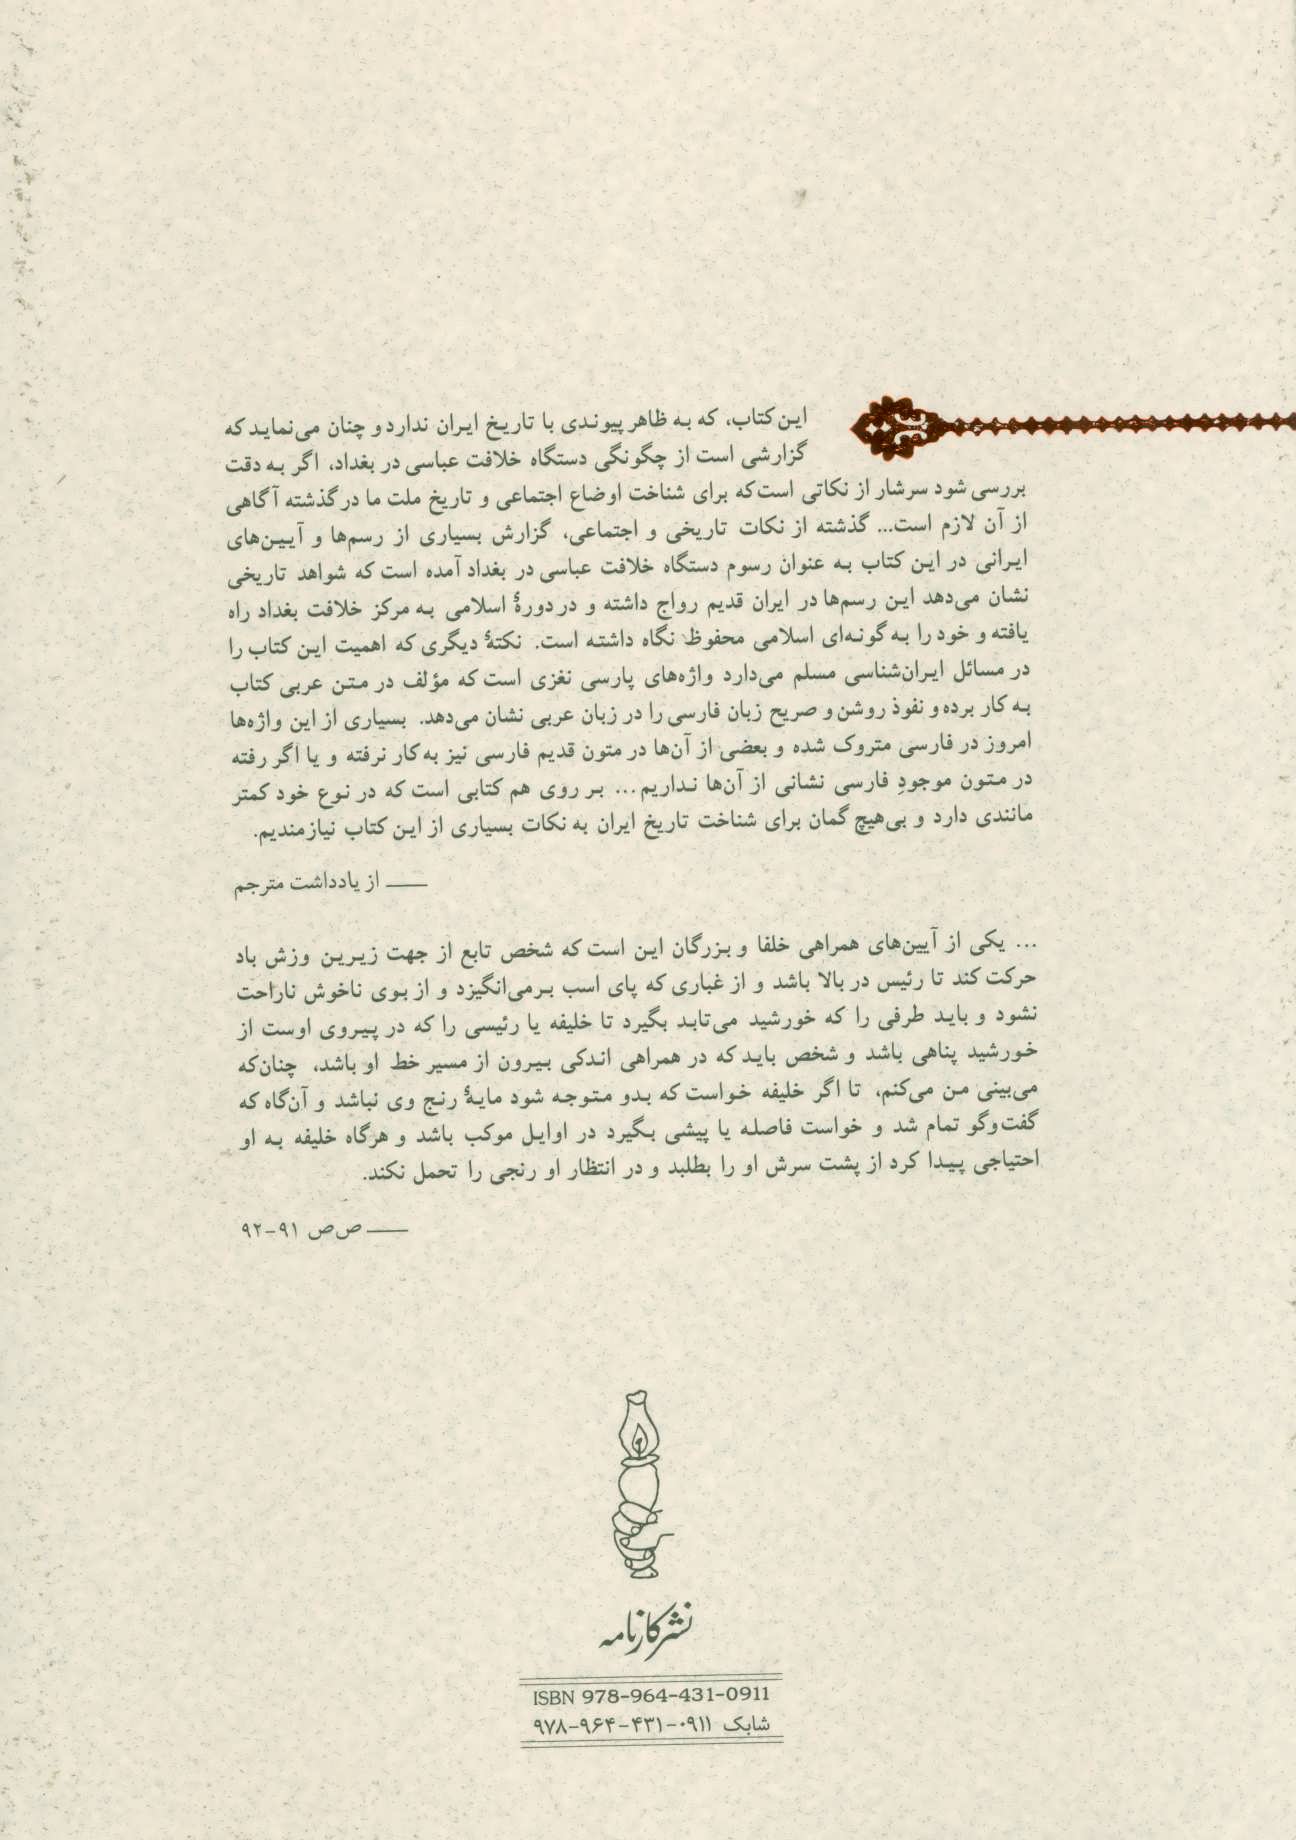 این کتاب، که به ظاهر پیوندی با تاریخ ایران ندارد و چنان می‌نماید که
گزارشی است از چگونگی دستگاه خلافت عباسی در بغداد، اگر به دقت
بررسی شود سرشار از نکاتی است که برای شناخت اوضاع اجتماعی و تاریخ ملت ما در گذشته آگاهی
از آن لازم است... گذشته از نکات تاریخی و اجتماعی، گزارش بسیاری از رسم‌ها و آیین‌های
ایرانی در این کتاب به عنوان رسوم دستگاه خلافت عباسی در بغداد آمده است که شواهد تاریخی
نشان می‌دهد این رسم‌ها در ایران قدیم رواج داشته و در دورهٔ اسلامی به مرکز خلافت بغداد راه
یافته و خود را به گونه‌ای اسلامی محفوظ نگاه داشته است. نکتهٔ دیگری که اهمیت این کتاب را
در مسائل ایران‌شناسی مسلم می‌دارد واژه‌های پارسی نغزی است که مؤلف در متن عربی کتاب
به کار برده و نفوذ روشن و صریح زبان فارسی را در زبان عربی نشان می‌دهد. بسیاری از این واژه‌ها
امروز در فارسی متروک شده و بعضی از آن‌ها در متون قدیم فارسی نیز به کار نرفته و یا اگر رفته
در متون موجودِ فارسی نشانی از آن‌ها نداریم... بر روی هم کتابی است که در نوع خود کمتر
مانندی دارد و بی‌هیچ گمان برای شناخت تاریخ ایران به نکات بسیاری از این کتاب نیازمندیم.
—— از یادداشت مترجم
... یکی از آیین‌های همراهی خلفا و بزرگان این است که شخص تابع از جهت زیرین وزش باد
حرکت کند تا رئیس در بالا باشد و از غباری که پای اسب برمی‌انگیزد و از بوی ناخوش ناراحت
نشود و باید طرفی را که خورشید می‌تابد بگیرد تا خلیفه یا رئیسی را که در پیروی اوست از
خورشید پناهی باشد و شخص باید که در همراهی اندکی بیرون از مسیر خط او باشد، چنان‌که
می‌بینی من می‌کنم، تا اگر خلیفه خواست که بدو متوجه شود مایهٔ رنج وی نباشد و آن‌گاه که
گفت‌وگو تمام شد و خواست فاصله یا پیشی بگیرد در اوایل موکب باشد و هرگاه خلیفه به او
احتیاجی پیدا کرد از پشت سرش او را بطلبد و در انتظار او رنجی را تحمل نکند.
—— ص‌ص ۹۱-۹۲
نشر کارنامه
ISBN 978-964-431-0911
شابک ۰۹۱۱-۴۳۱-۹۶۴-۹۷۸